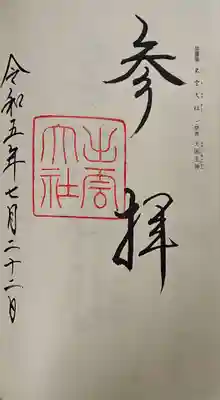 出雲大社
参拝
出雲大社
令和五年七月二十二日